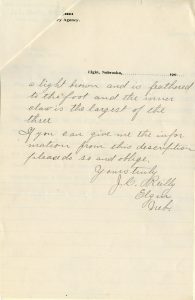 ry Agency.
Elgin, Nebraska, 190
a light brown and is feathered
to the foot and the inner
claw is the largest of the
three
If you can give me the infor
mation from this description
please do so and oblige.
Yours truly
J.C. Reilly
Elgin
Neb.